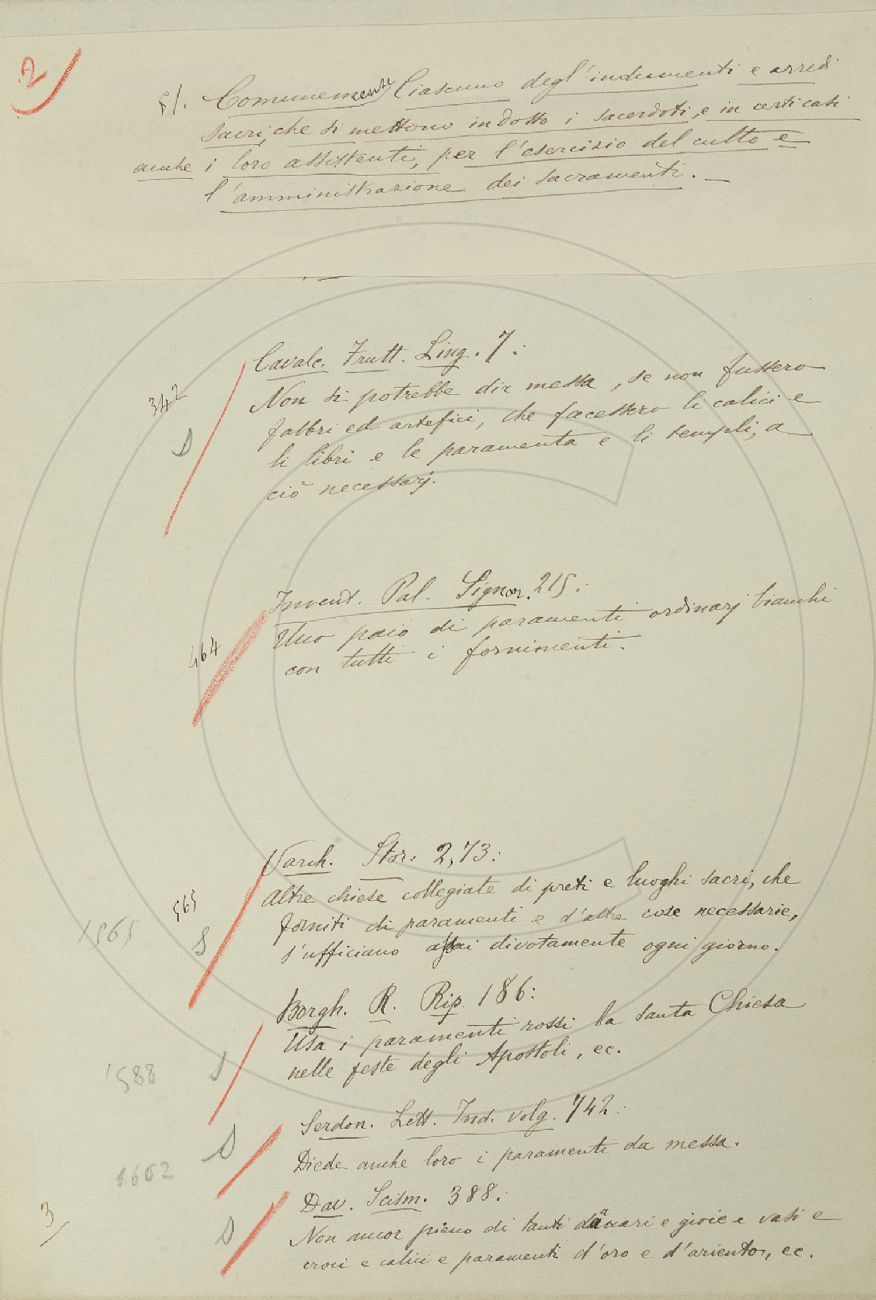 2
§ I. Comunemente Ciascuno degl'indumenti e arredi
sacri, che si mettono indosso i sacerdoti, e in certi casi
anche i loro assistenti, per l'esercizio del culto e
l'amministrazione dei sacramenti. —
Cavalc. Frutt. Ling. 7:
342
Non si potrebbe dir messa, se non fussero
fabbri ed artefici, che facessero li calici e
li libri e le paramenta e li templi, a
ciò necessarj.
Invent. Pal. Signor. 215:
464
Uno paio di paramenti ordinarj bianchi
con tutti i fornimenti.
Varch. Stor. 2,73:
565
Altre chiese collegiate di preti e luoghi sacri, che
forniti di paramenti e d'altre cose necessarie,
1565
s'ufficiano assai divotamente ogni giorno.
Borgh. R. Rip. 186:
Usa i paramenti rossi la santa Chiesa
nelle feste degli Apostoli, ec.
1588
Serdon. Lett. Ind. volg. 742:
Diede anche loro i paramenti da messa.
1602
Dav. Scism. 388:
3
Non ancor pieno di tanti danari e gioie e vasi e
croci e calici e paramenti d'oro e d'ariento, ec.